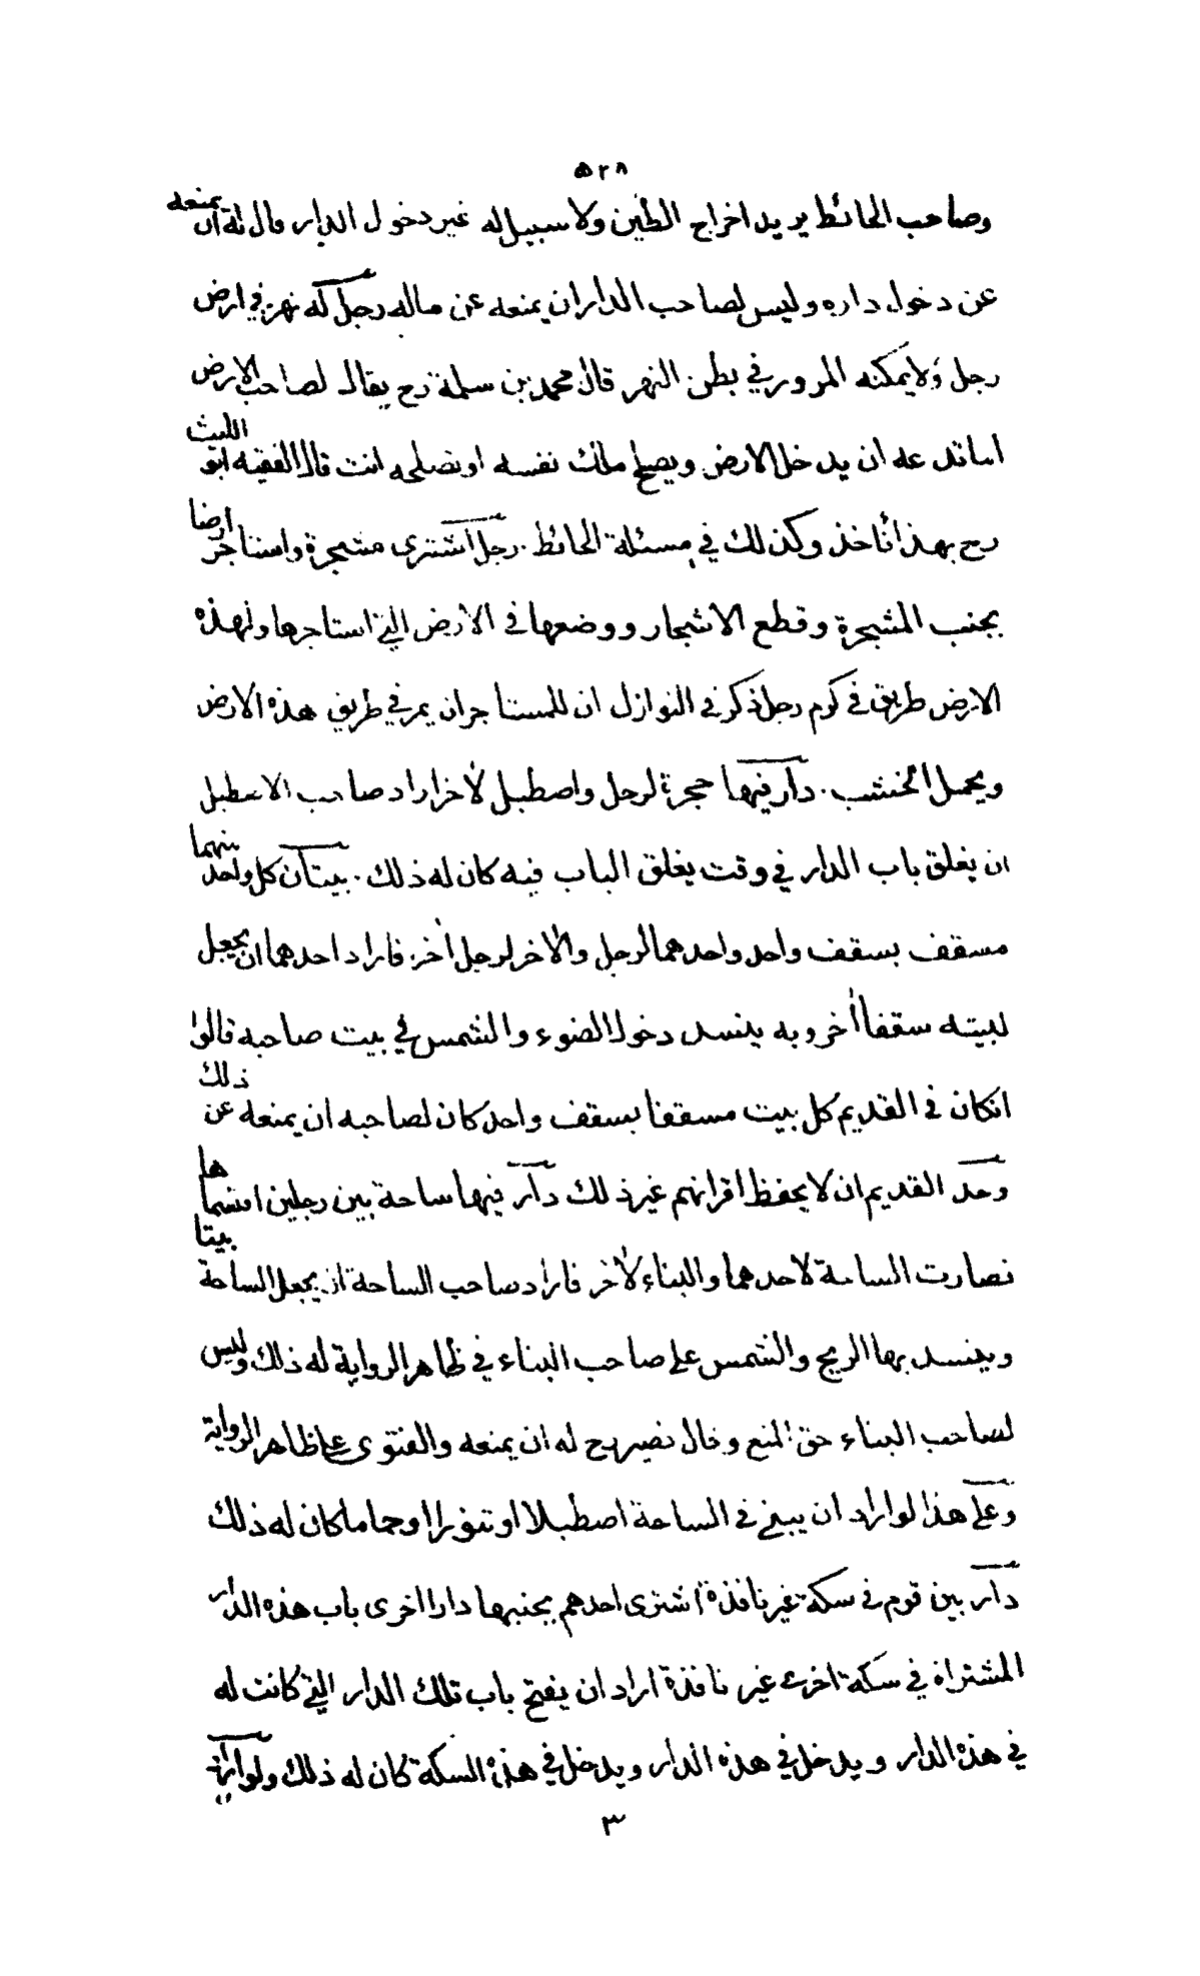 ٥٢٨
وصاحب الحائط يريد اخراج الطين ولا سبيل له غير دخول الدار قال له ان يمنعه
عن دخول داره وليس لصاحب الدار ان يمنعه عن ماله رجل له نهر في ارض
رجل ولا يمكنه المرور في بطن النهر قال محمد بن سلمة رح يقال لصاحب الارض
اما تدعه ان يدخل الارض ويصلح ملك نفسه او تصلحه انت قال الفقيه ابو الليث
رح بهذا نأخذ وكذلك في مسئلة الحائط . رجل اشترى مشجرة واستاجر ارضا
بجنب المشجرة وقطع الاشجار ووضعها في الارض التي استاجرها ولهذه
الارض طريق في كرم رجل ذكر في النوازل ان للمستاجر ان يمر في طريق هذه الارض
ويحمل الخشب . دار فيها حجرة لرجل واصطبل لاخر اراد صاحب الاصطبل
ان يغلق باب الدار في وقت يغلق الباب فيه كان له ذلك . بيتان كل واحد منهما
مسقف بسقف واحد واحدهما لرجل والاخر لرجل اخر فاراد احدهما ان يجعل
لبيته سقفا أخر وبه ينسد دخول الضوء والشمس في بيت صاحبه قالوا
انكان في القديم كل بيت مسقفا بسقف واحد كان لصاحبه ان يمنعه عن ذلك
وحد القديم ان لا يحفظ اقرانهم غير ذلك دار فيها ساحة بين رجلين اقتسماها
فصارت الساحة لاحدهما والبناء لاخر فاراد صاحب الساحة ان يجعل الساحة بيتا
وينسد بها الريح والشمس على صاحب البناء في ظاهر الرواية له ذلك وليس
لصاحب البناء حق المنع وقال نصير رح له ان يمنعه والفتوى على ظاهر الرواية
وعلى هذا لو اراد ان يبني في الساحة اصطبلا او تنورا او حماما كان له ذلك
دار بين قوم في سكة غير نافذة اشترى احدهم بجنبها دارا اخرى باب هذه الدار
المشتراة في سكة اخرى غير نافذة اراد ان يفتح باب تلك الدار التي كانت له
في هذه الدار ويدخل في هذه الدار ويدخل في هذه السكة كان له ذلك ولو
٣